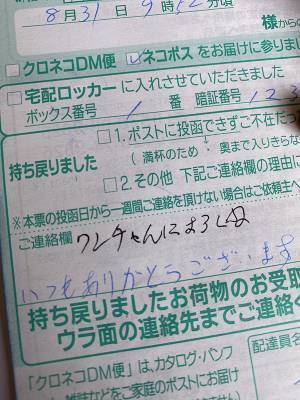 8月31日 9時52分頃
様からの
クロネコDM便 ネコポス をお届けに参りまし
宅配ロッカー に入れさせていただきました
ボックス番号 1 番 暗証番号 123
持ち戻りました
1. ポストに投函できずご不在だっ
(満杯のため・奥まで入りきらな
2. その他 下記ご連絡欄の理由に
※本票の投函日から一週間ご連絡を頂けない場合はご依頼主へ
ご連絡欄 ワンチャんに
いつもありがとうございます
持ち戻りましたお荷物のお受取
ウラ面の連絡先までご連絡
配達員名
「クロネコDM便」は、カタログ・パンフ
雑誌などをご家庭のポストにお届け